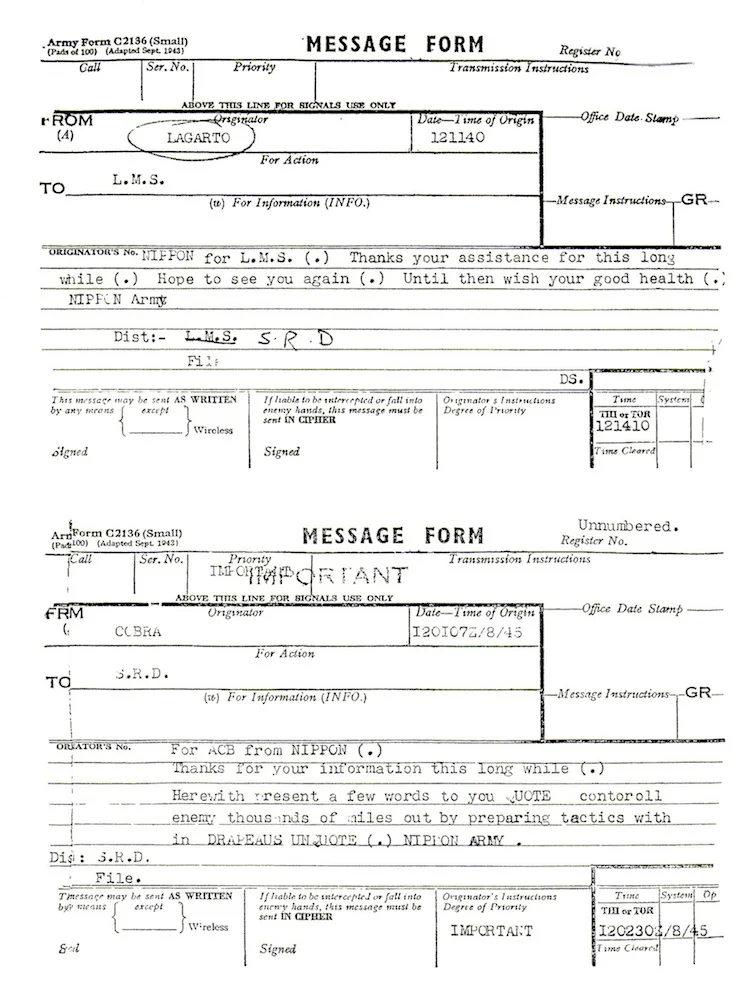 Army Form C2136 (Small)
(Pads of 100) (Adapted Sept. 1943)
MESSAGE FORM
Register No
Call Ser. No. Priority Transmission Instructions
ABOVE THIS LINE FOR SIGNALS USE ONLY
FROM Originator Date—Time of Origin Office Date Stamp
(A) LAGARTO 121140
For Action
TO L.M.S.
(w) For Information (INFO.) Message Instructions GR
ORIGINATOR'S No. NIPPON for L.M.S. (.) Thanks your assistance for this long
while (.) Hope to see you again (.) Until then wish your good health (.)
NIPPON Army
Dist:- L.M.S. S.R.D
File
DS.
This message may be sent AS WRITTEN If liable to be intercepted or fall into Originator's Instructions Time System
by any means except enemy hands, this message must be Degree of Priority
sent IN CIPHER THI or TOR
Wireless 121410
Signed Signed Time Cleared
Unnumbered.
Form C2136 (Small)
100) (Adapted Sept. 1943)
MESSAGE FORM
Register No.
Call Ser. No. Priority Transmission Instructions
IMPORTANT IMPORTANT
ABOVE THIS LINE FOR SIGNALS USE ONLY
FRM Originator Date—Time of Origin Office Date Stamp
COBRA I20I07Z/8/45
For Action
TO S.R.D.
(w) For Information (INFO.) Message Instructions GR
No. For ACB from NIPPON (.)
Thanks for your information this long while (.)
Herewith present a few words to you QUOTE contoroll
enemy thousands of miles out by preparing tactics with
in DRAPEAUS UNQUOTE (.) NIPPON ARMY .
Dis: S.R.D.
File.
message may be sent AS WRITTEN If liable to be intercepted or fall into Originator's Instructions Time System Op
by means except enemy hands, this message must be Degree of Priority
sent IN CIPHER THI or TOR
Wireless IMPORTANT I20230Z/8/45
Signed Time Cleared